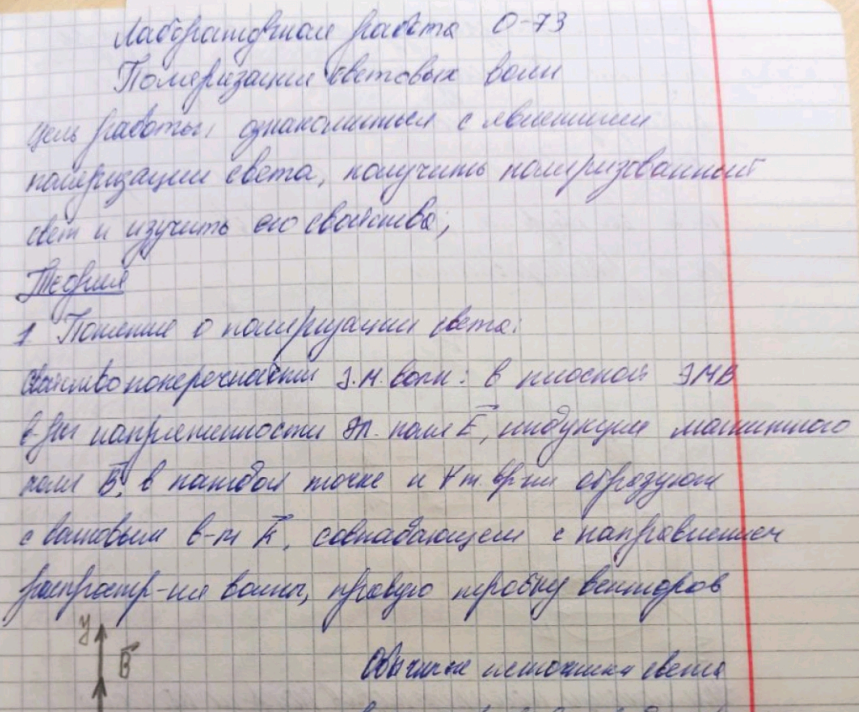 Лабораторная работа О-73
Поляризация световых волн
Цель работы: ознакомиться с явлением
поляризации света, получить поляризованный
свет и изучить его свойства;
Теория
1 Понятие о поляризации света:
Свойство поперечности Э.М. волн: в плоской ЭМВ
в-ры напряженности эл. поля E, индукции магнитного
поля B, в каждой точке и ∀ т. вр-ни образуют
с волновым в-м k, совпадающем с направлением
распростр-ия волны, правую тройку векторов
y
B
Обычные источники света